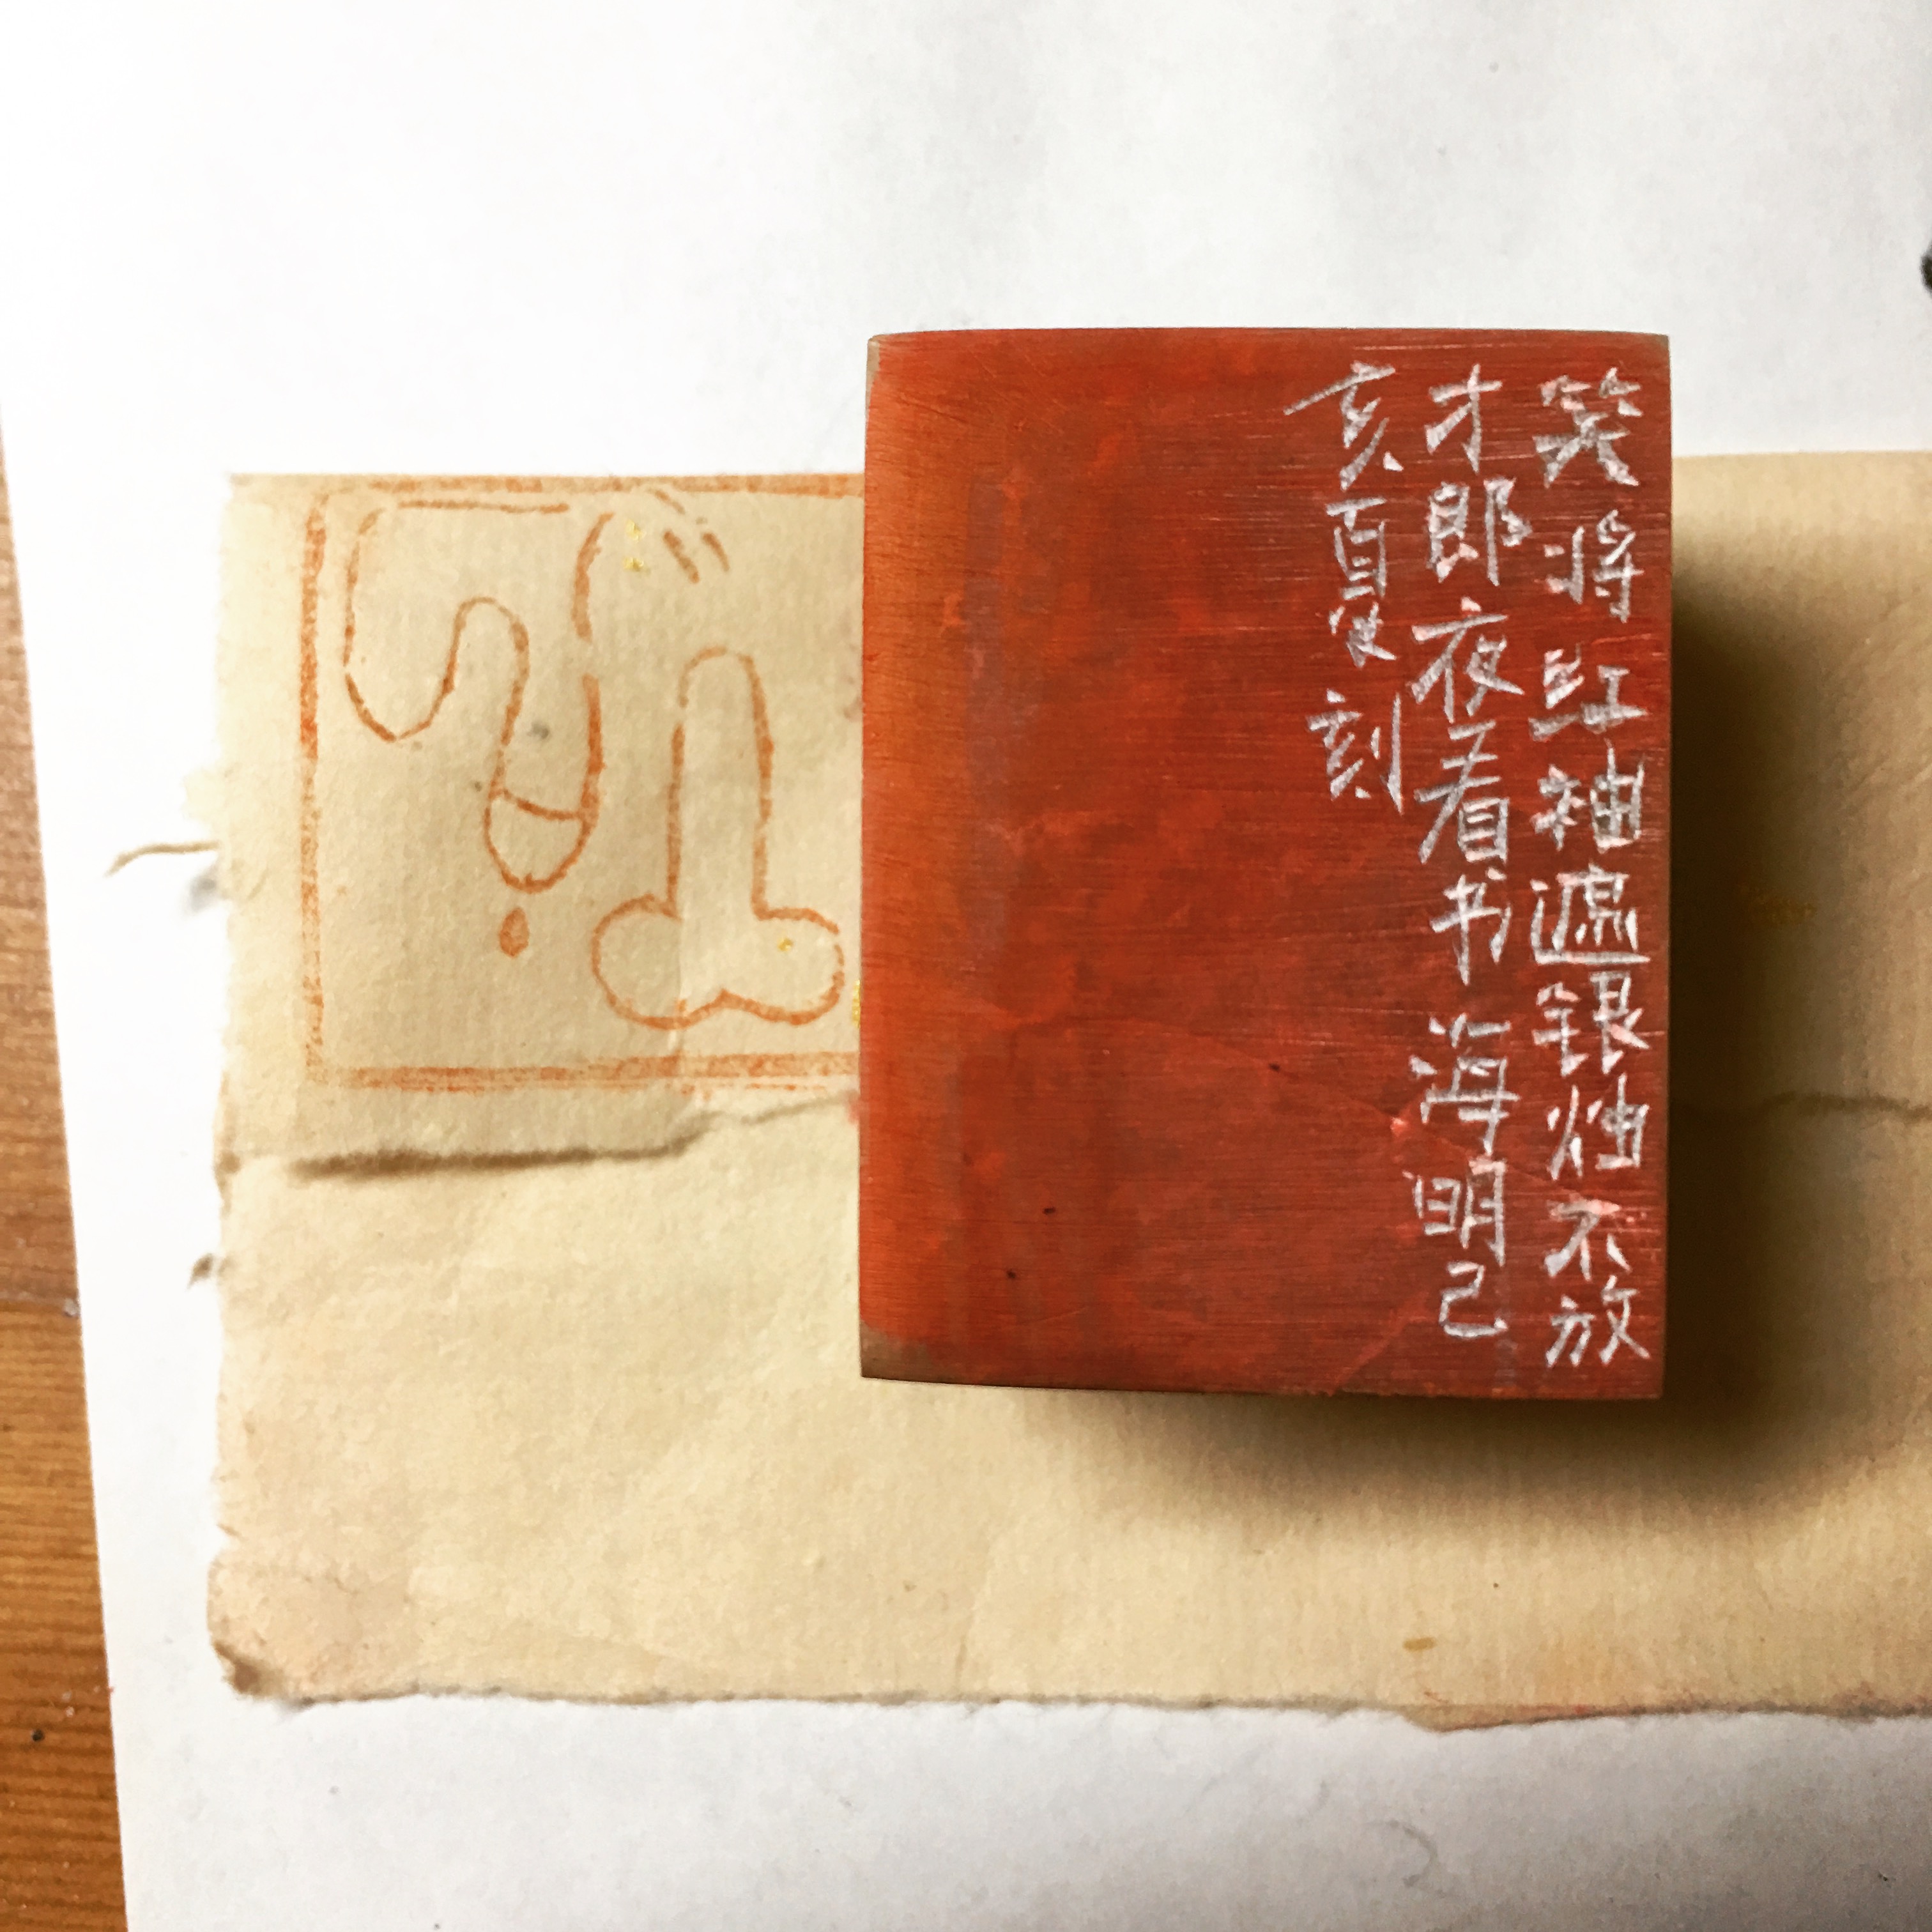 笑将红袖遮银烛不放
才郎夜看书 海明己
亥夏刻